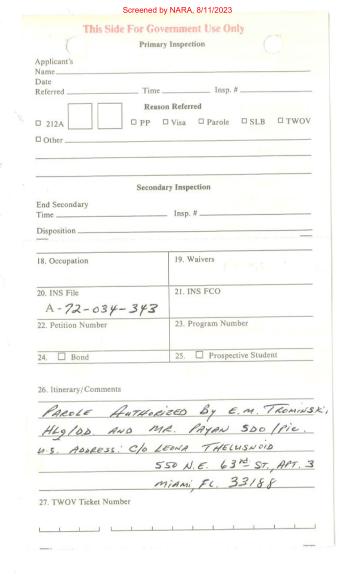 Screened by NARA, 8/11/2023
This Side For Government Use Only
Primary Inspection
Applicant's
Name
Date
Referred Time Insp. #
Reason Referred
212A PP Visa Parole SLB TWOV
Other
Secondary Inspection
End Secondary
Time Insp. #
Disposition
18. Occupation 19. Waivers
20. INS File 21. INS FCO
A-72-034-343
22. Petition Number 23. Program Number
24. Bond 25. Prospective Student
26. Itinerary/Comments
PAROLE AUTHORIZED By E.M. TROMINSKI,
HLG/DD. AND MR. PAYAN SDO/Pic.
U.S. ADDRESS: C/O LEONA THELUSNOID
550 N.E. 63rd ST., APT. 3
MIAMI, FL. 33188
27. TWOV Ticket Number